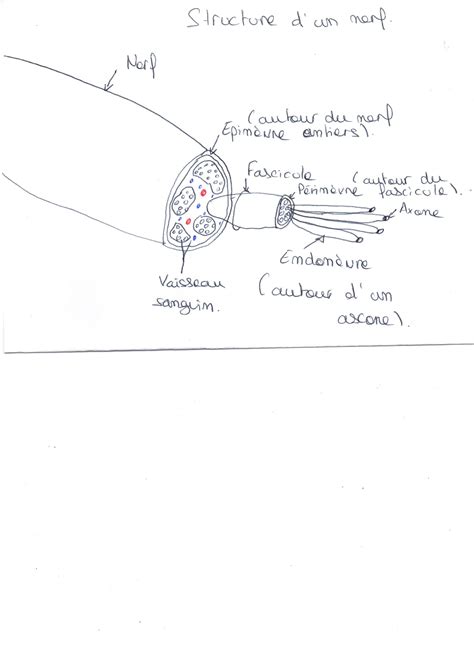 Structure d'un nerf.
Nerf
(autour du nerf
Epinèvre entiers).
Fascicule
(autour du
Périnèvre fascicule).
Axone
Endonèvre
(autour d'un
axone).
Vaisseau
sanguin.